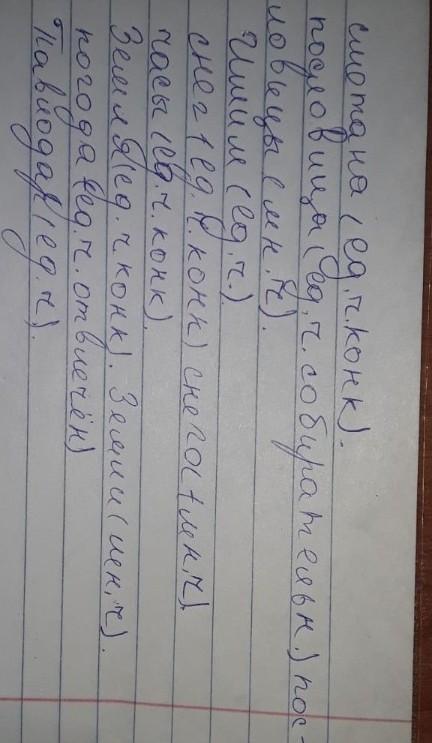 сметана (ед.ч.конк).
пословица (ед.ч.собирательн.) пос-
ловицы (мн.ч).
Ишим (ед.ч.)
снег (ед.ч.конк) снега (мн.ч)
часы (ед.ч.конк).
Земля (ед.ч конк). Земли (мн.ч).
погода (ед.ч.отвлечён)
Павлодар (ед.ч).